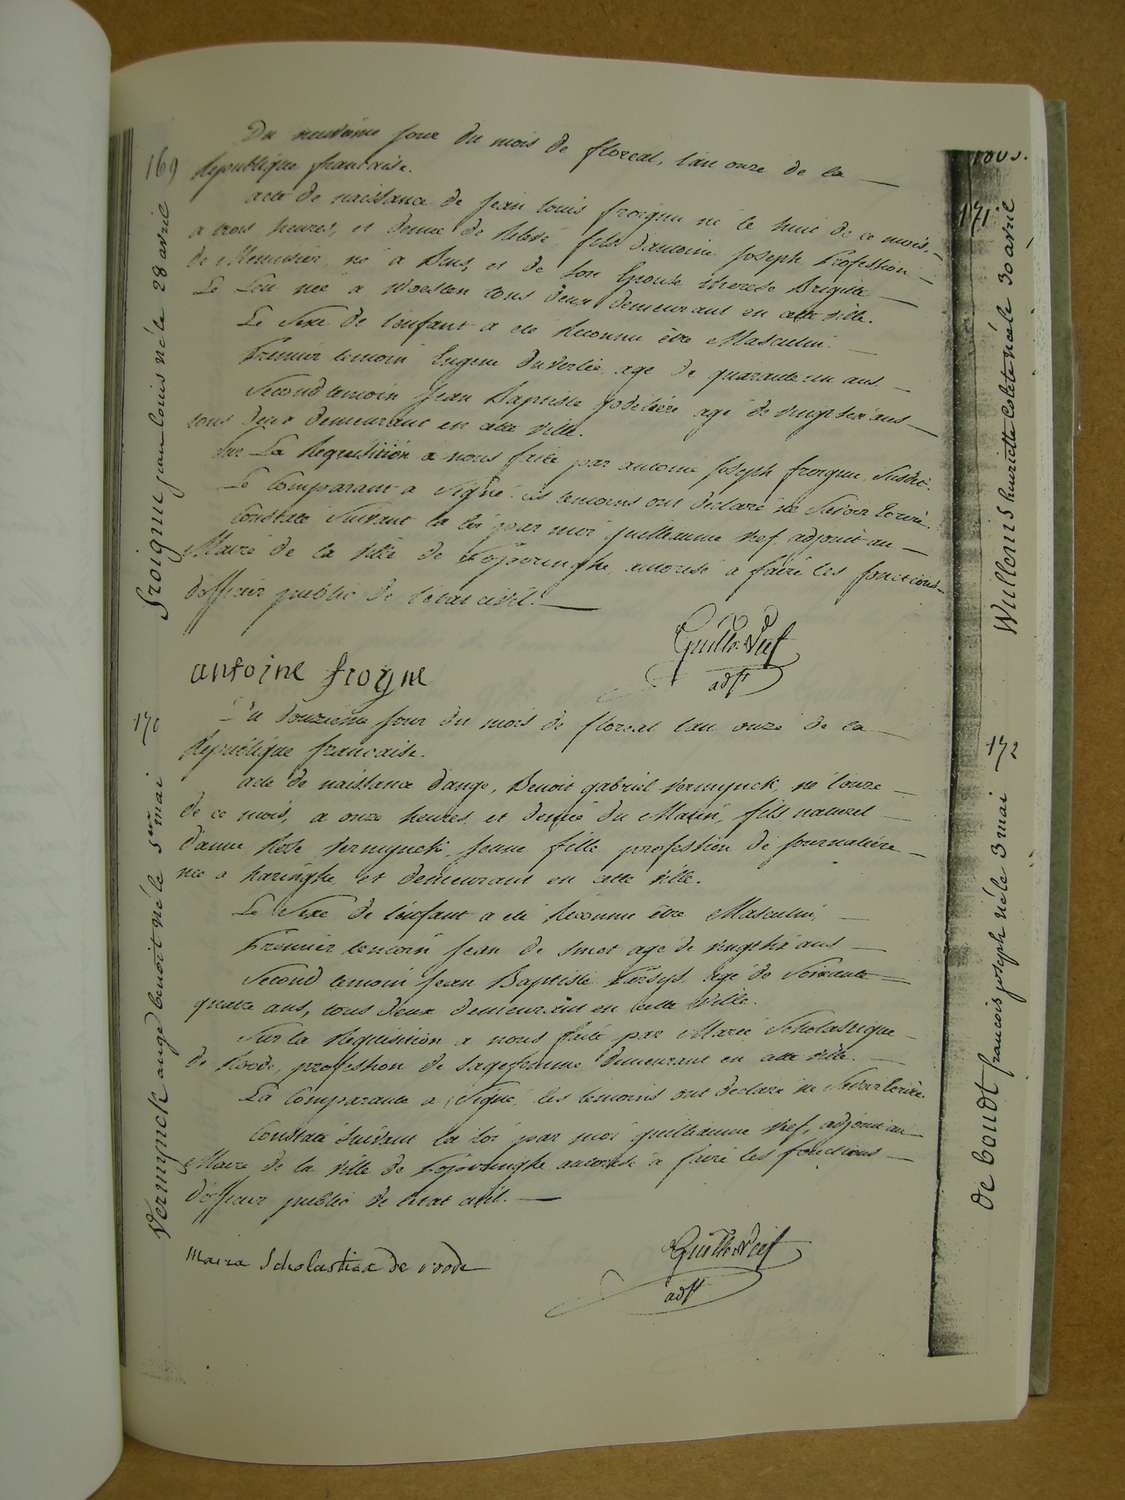 169
froigne jean louis né le 28 avril
Du neuvieme jour du mois de floreal, l'an onze de la
Republique francaise.
acte de naissance de jean louis froigne né le huit de ce mois,
a trois heures, et demie de Relevé, fils d'antoine joseph Profession
de Menuisier, né a et de son Epouse therese Brigitte
née a Woesten tous deux demeurant en cette ville.
Le Sexe de l'enfant a eté Reconnu être Masculin.
Premier temoin Eugene agé de quarante un ans
Second temoin Jean Baptiste agé de vingtsix ans
tous deux demeurant en cette ville.
Sur La Requisition a nous faite par antoine joseph froigne susdit.
Le Comparant a Signé les temoins ont declaré ne Savoir Ecrire.
Constaté Suivant la loi par moi guilliaume Vief adjoint au
Maire de la ville de Popringhe, autorisé a faire les fonctions
d'officier public de l'etat civil.
antoine frogne
Guille Vief
adjt
170
Vermynck ange benoit né le 1er mai
Du douzieme jour du mois de floreal l'an onze de la
Republique francaise.
acte de naissance d'ange, Benoit gabriel Vermynck, né l'onze
de ce mois, a onze heures et demie du Matin, fils naturel
d'anne Rose Vermynck, jeune fille profession de journaliére
née a haringhe et demeurant en cette ville.
Le Sexe de l'enfant a eté Reconnu être Masculin,
Premier temoin jean de Smet agé de vingtsix ans
Second temoin jean Baptiste agé de Soixante
quatre ans, tous deux demeurant en cette ville.
Sur la Requisition a nous faite par Marie Scholastique
de Roode, profession de Sagefemme demeurant en cette ville.
La Comparante a Signé, les temoins ont declaré ne Savoir Ecrire.
Constaté Suivant la loi par moi guilliaume Vief, adjoint au
Maire de la ville de Popringhe autorisé a faire les fonctions
d'officier public de l'etat civil.
Maria Scholastica de roode
Guille Vief
adjt
1803.
171
Wullems henriette Colete née le 30 avril
172
De boudt francois joseph né le 3 mai